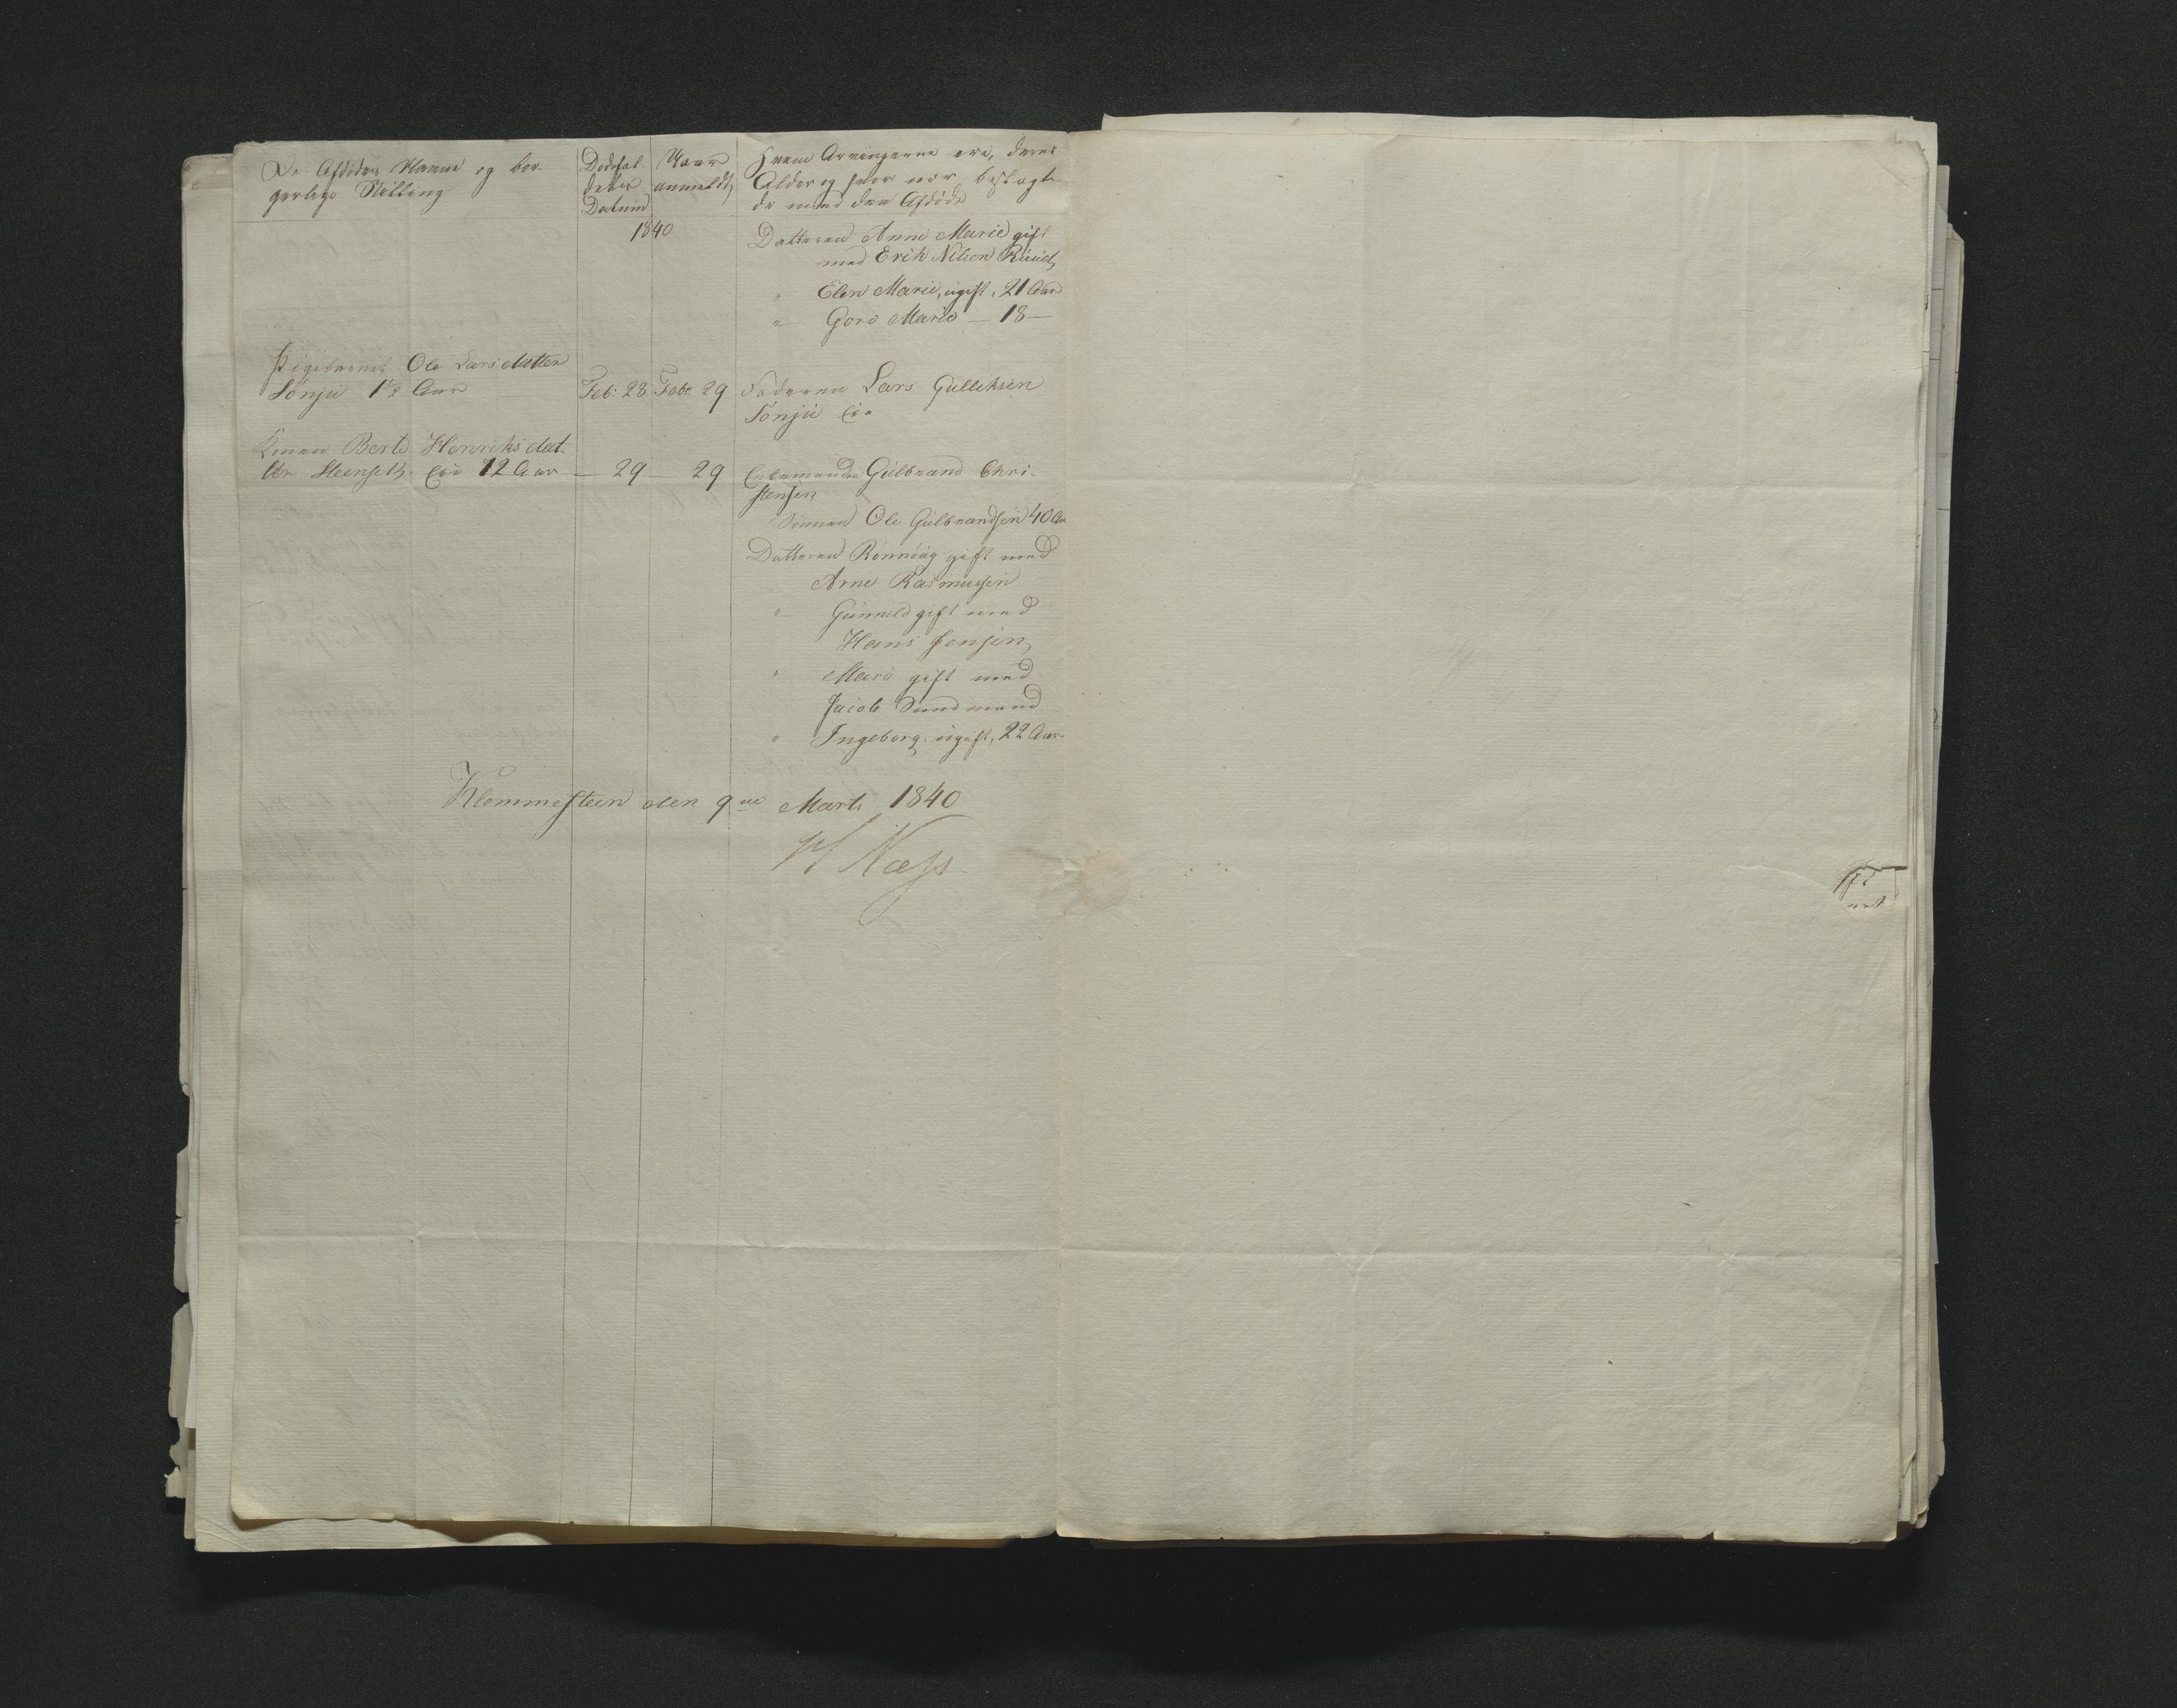 De Afdødes Navne og bor-
gerlige Stilling
Dødsfal-
denes
Datum
Naar
anmeldt
Hvem Arvingerne ere, deres
Alder og hvor nær beslægte-
de med den Afdøde
1840
Datteren Anne Marie gift
med Erik Nilsen
" Elen Marie, ugift, 21 Aar
" Goro Marie — 18 —
Pigebarnet Ole Larsdatter
Sönju 1½ Aar
Feb: 28
Febr 29
Faderen Lars Gulleksen
Sönju Eie
Konen Berte Henriksdat-
ter Steenseth Eie 72 Aar
— 29
— 29
Enkemanden Gulbrand Chri-
stensen
Sønnen Ole Gulbrandsen 40 Aar
Datteren Rönnöug gift med
Arne Rasmussen
" Gunnild gift med
Hans Jensen
" Mari gift med
Jacob Sundmand
" Ingeborg, ugift, 22 Aar
Klommesteen den 9de Marts 1840
Næss